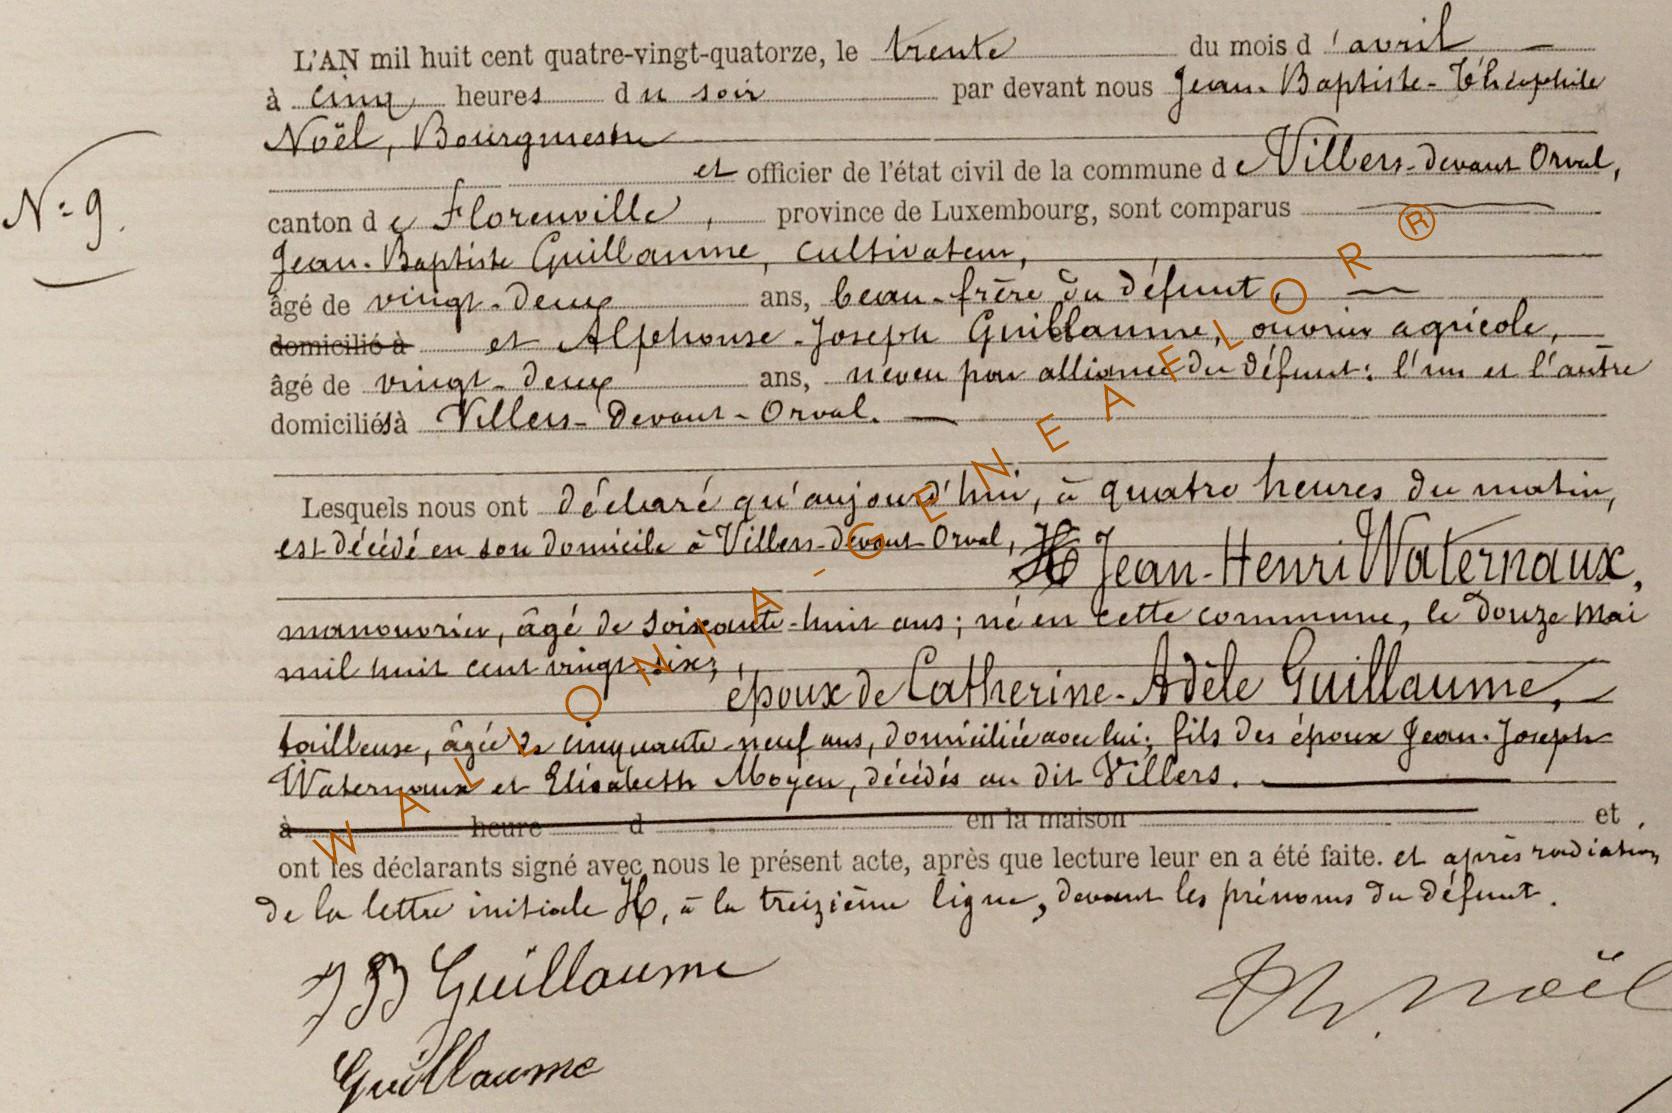 L'AN mil huit cent quatre-vingt-quatorze, le trente du mois d'avril
à cinq heures du soir par devant nous Jean-Baptiste-Théophile
Noël, Bourgmestre
et officier de l'état civil de la commune de Villers-devant Orval,
N: 9.
canton de Florenville, province de Luxembourg, sont comparus
Jean-Baptiste Guillaume, cultivateur,
âgé de vingt-deux ans, beau-frère du défunt,
domicilié à et Alphonse-Joseph Guillaume, ouvrier agricole,
âgé de vingt-deux ans, neveu par alliance du défunt: l'un et l'autre
domiciliés à Villers-Devant-Orval.
Lesquels nous ont déclaré qu'aujourd'hui, à quatre heures du matin,
est décédé en son domicile à Villers-devant-Orval, H Jean-Henri Waternaux,
manouvrier, âgé de soixante-huit ans; né en cette commune, le douze Mai
mil huit cent vingt-six;
époux de Catherine-Adèle Guillaume,
tailleuse, âgée de cinquante-neuf ans, domiciliée avec lui; fils des époux Jean-Joseph
Waternaux et Elisabeth Moyen, décédés au dit Villers.
à heure d en la maison et
ont les déclarants signé avec nous le présent acte, après que lecture leur en a été faite. et après radiation
de la lettre initiale H, à la treizième ligne, devant les prénoms du défunt.
JB Guillaume
Th. Noël
Guillaume
WALLONIA-GENEAFLOR ®